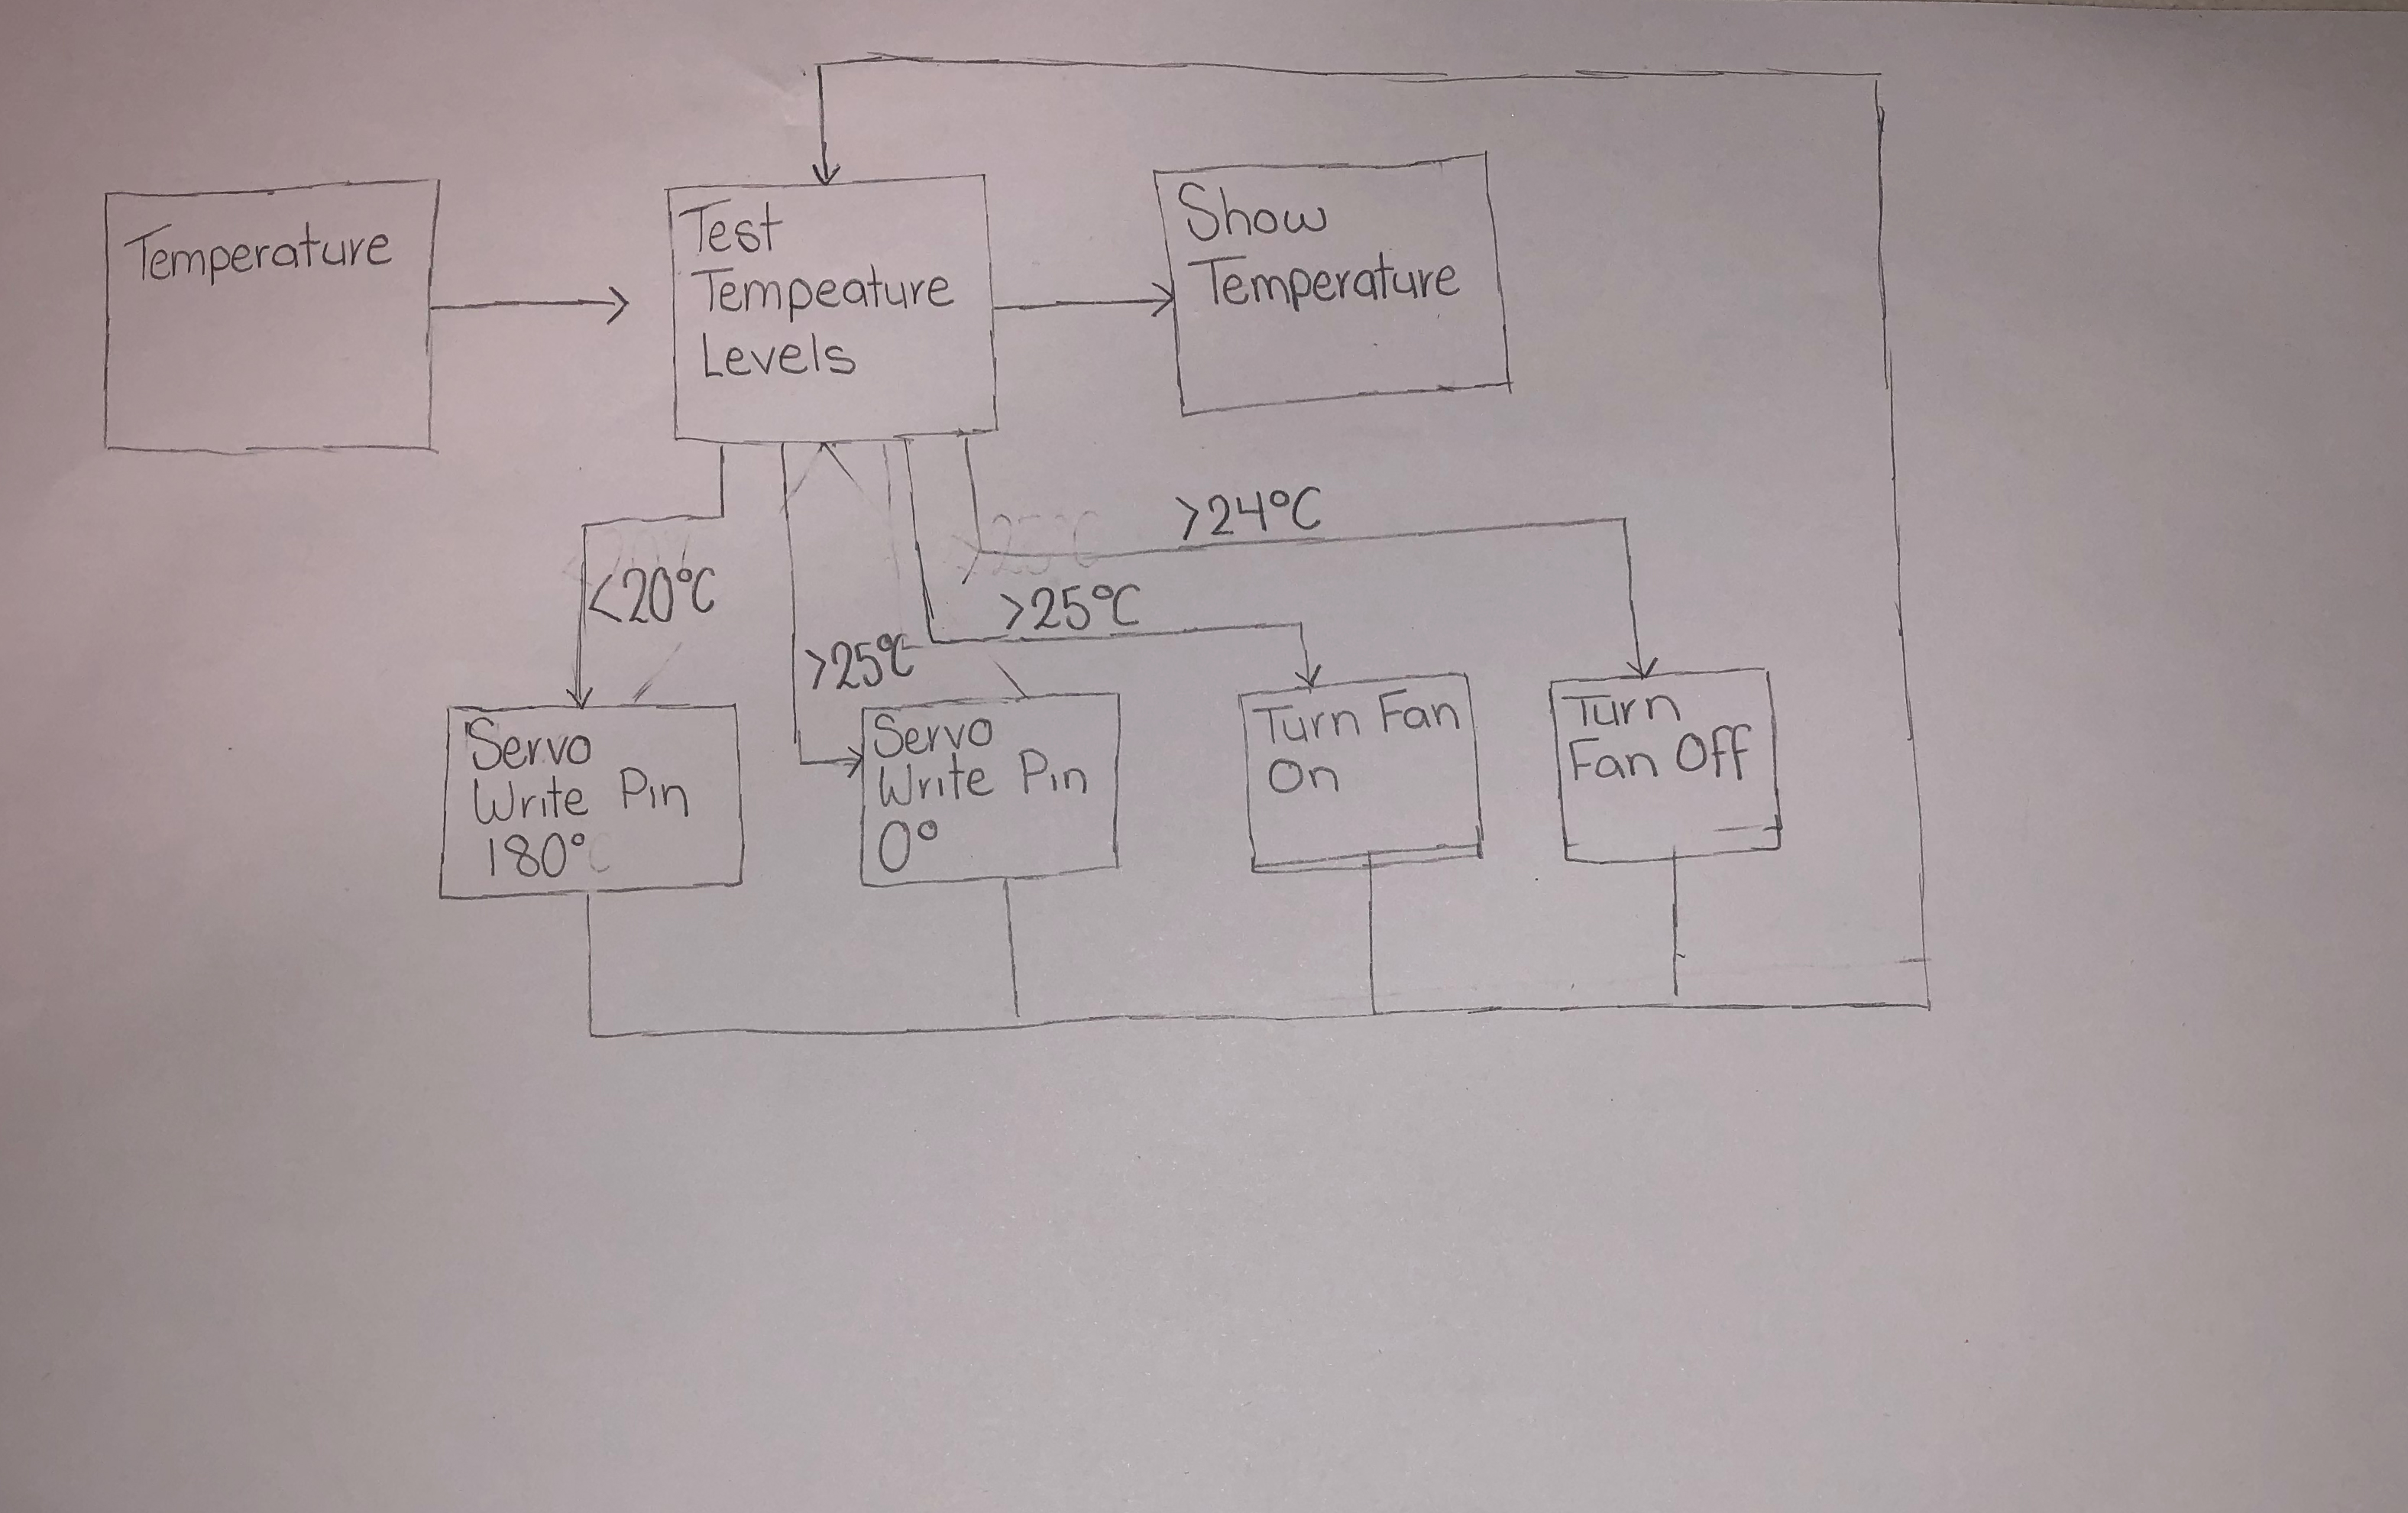 Temperature
Test
Tempeature
Levels
Show
Temperature
>24°C
<20°C
>25°C
>25°C
Servo
Write Pin
180°
Servo
Write Pin
0°
Turn Fan
On
Turn
Fan Off